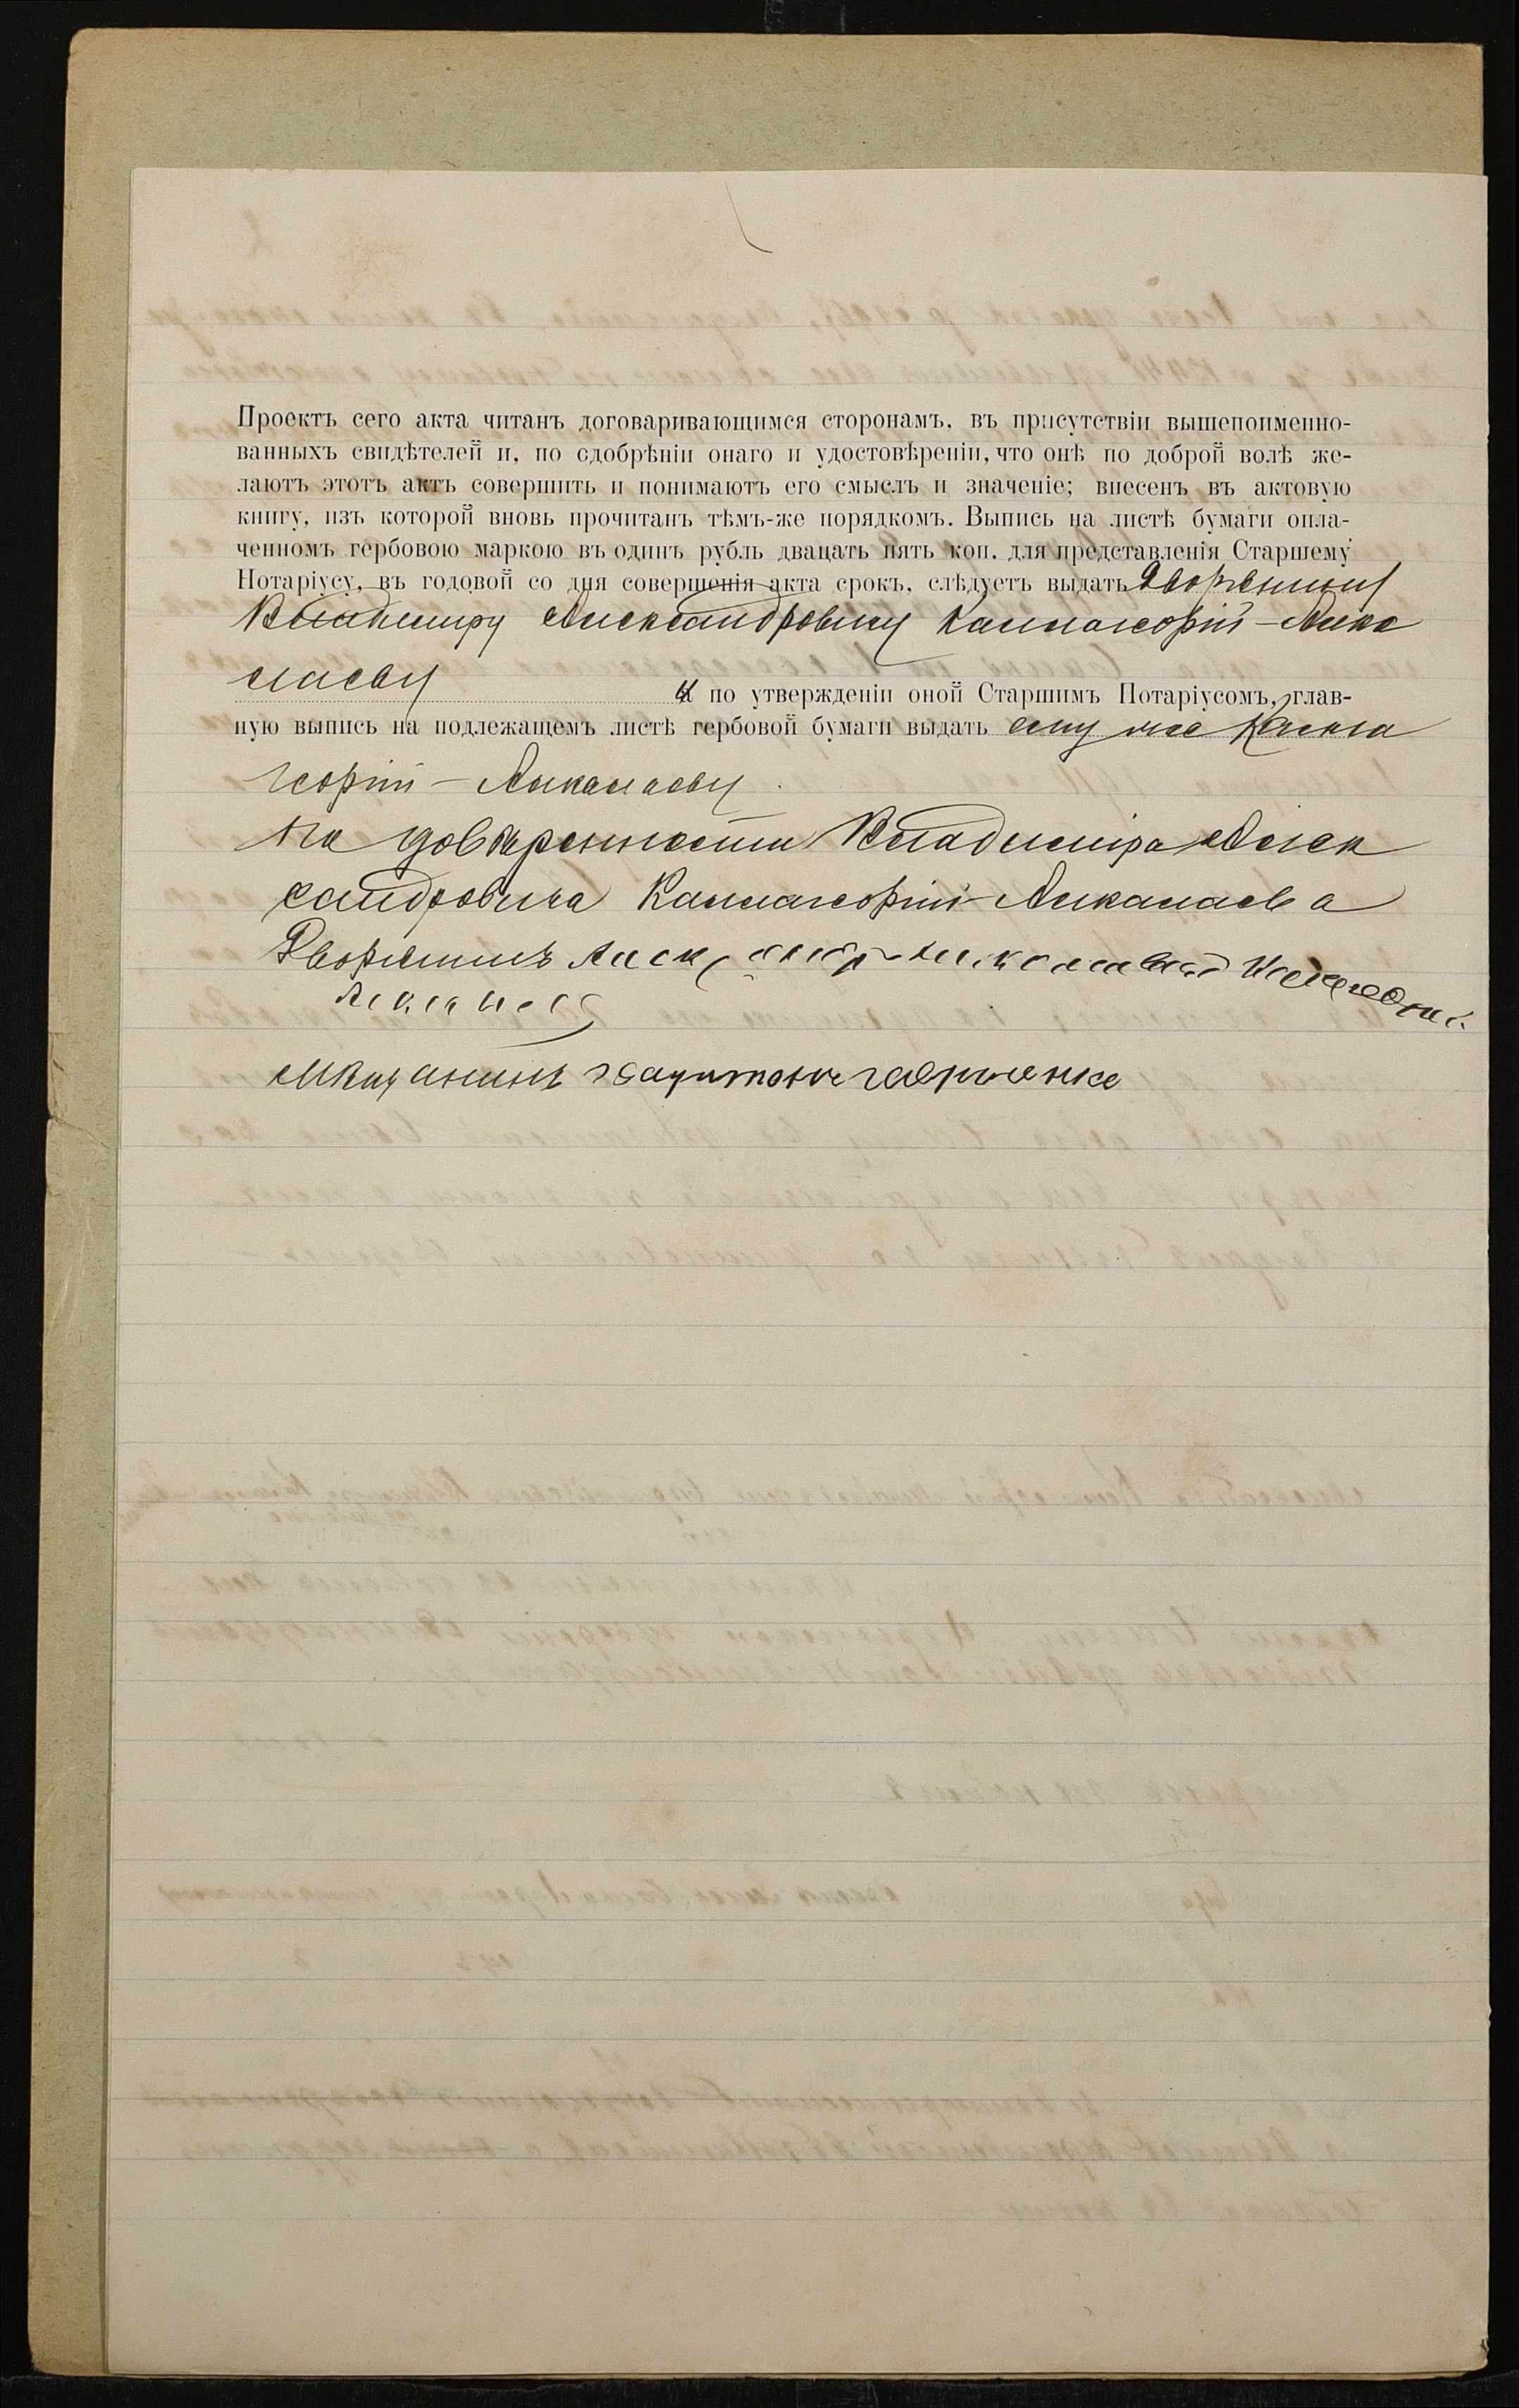 Проектъ сего акта читанъ договаривающимся сторонамъ, въ присутствіи вышепоименно-
ванныхъ свидѣтелей и, по одобрѣніи онаго и удостовѣреніи, что онѣ по доброй волѣ же-
лаютъ этотъ актъ совершить и понимаютъ его смыслъ и значеніе; внесенъ въ актовую
книгу, изъ которой вновь прочитанъ тѣмъ-же порядкомъ. Выпись на листѣ бумаги опла-
ченномъ гербовою маркою въ одинъ рубль двацать пять коп. для представленія Старшему
Нотаріусу, въ годовой со дня совершенія акта срокъ, слѣдуетъ выдать Дворянину
Владиміру Александровичу
и по утвержденіи оной Старшимъ Нотаріусомъ, глав-
ную выпись на подлежащемъ листѣ гербовой бумаги выдать ему же
По довѣренности Владиміра Алек
сандровича
Дворянинъ
Мѣщанинъ Харитонъ